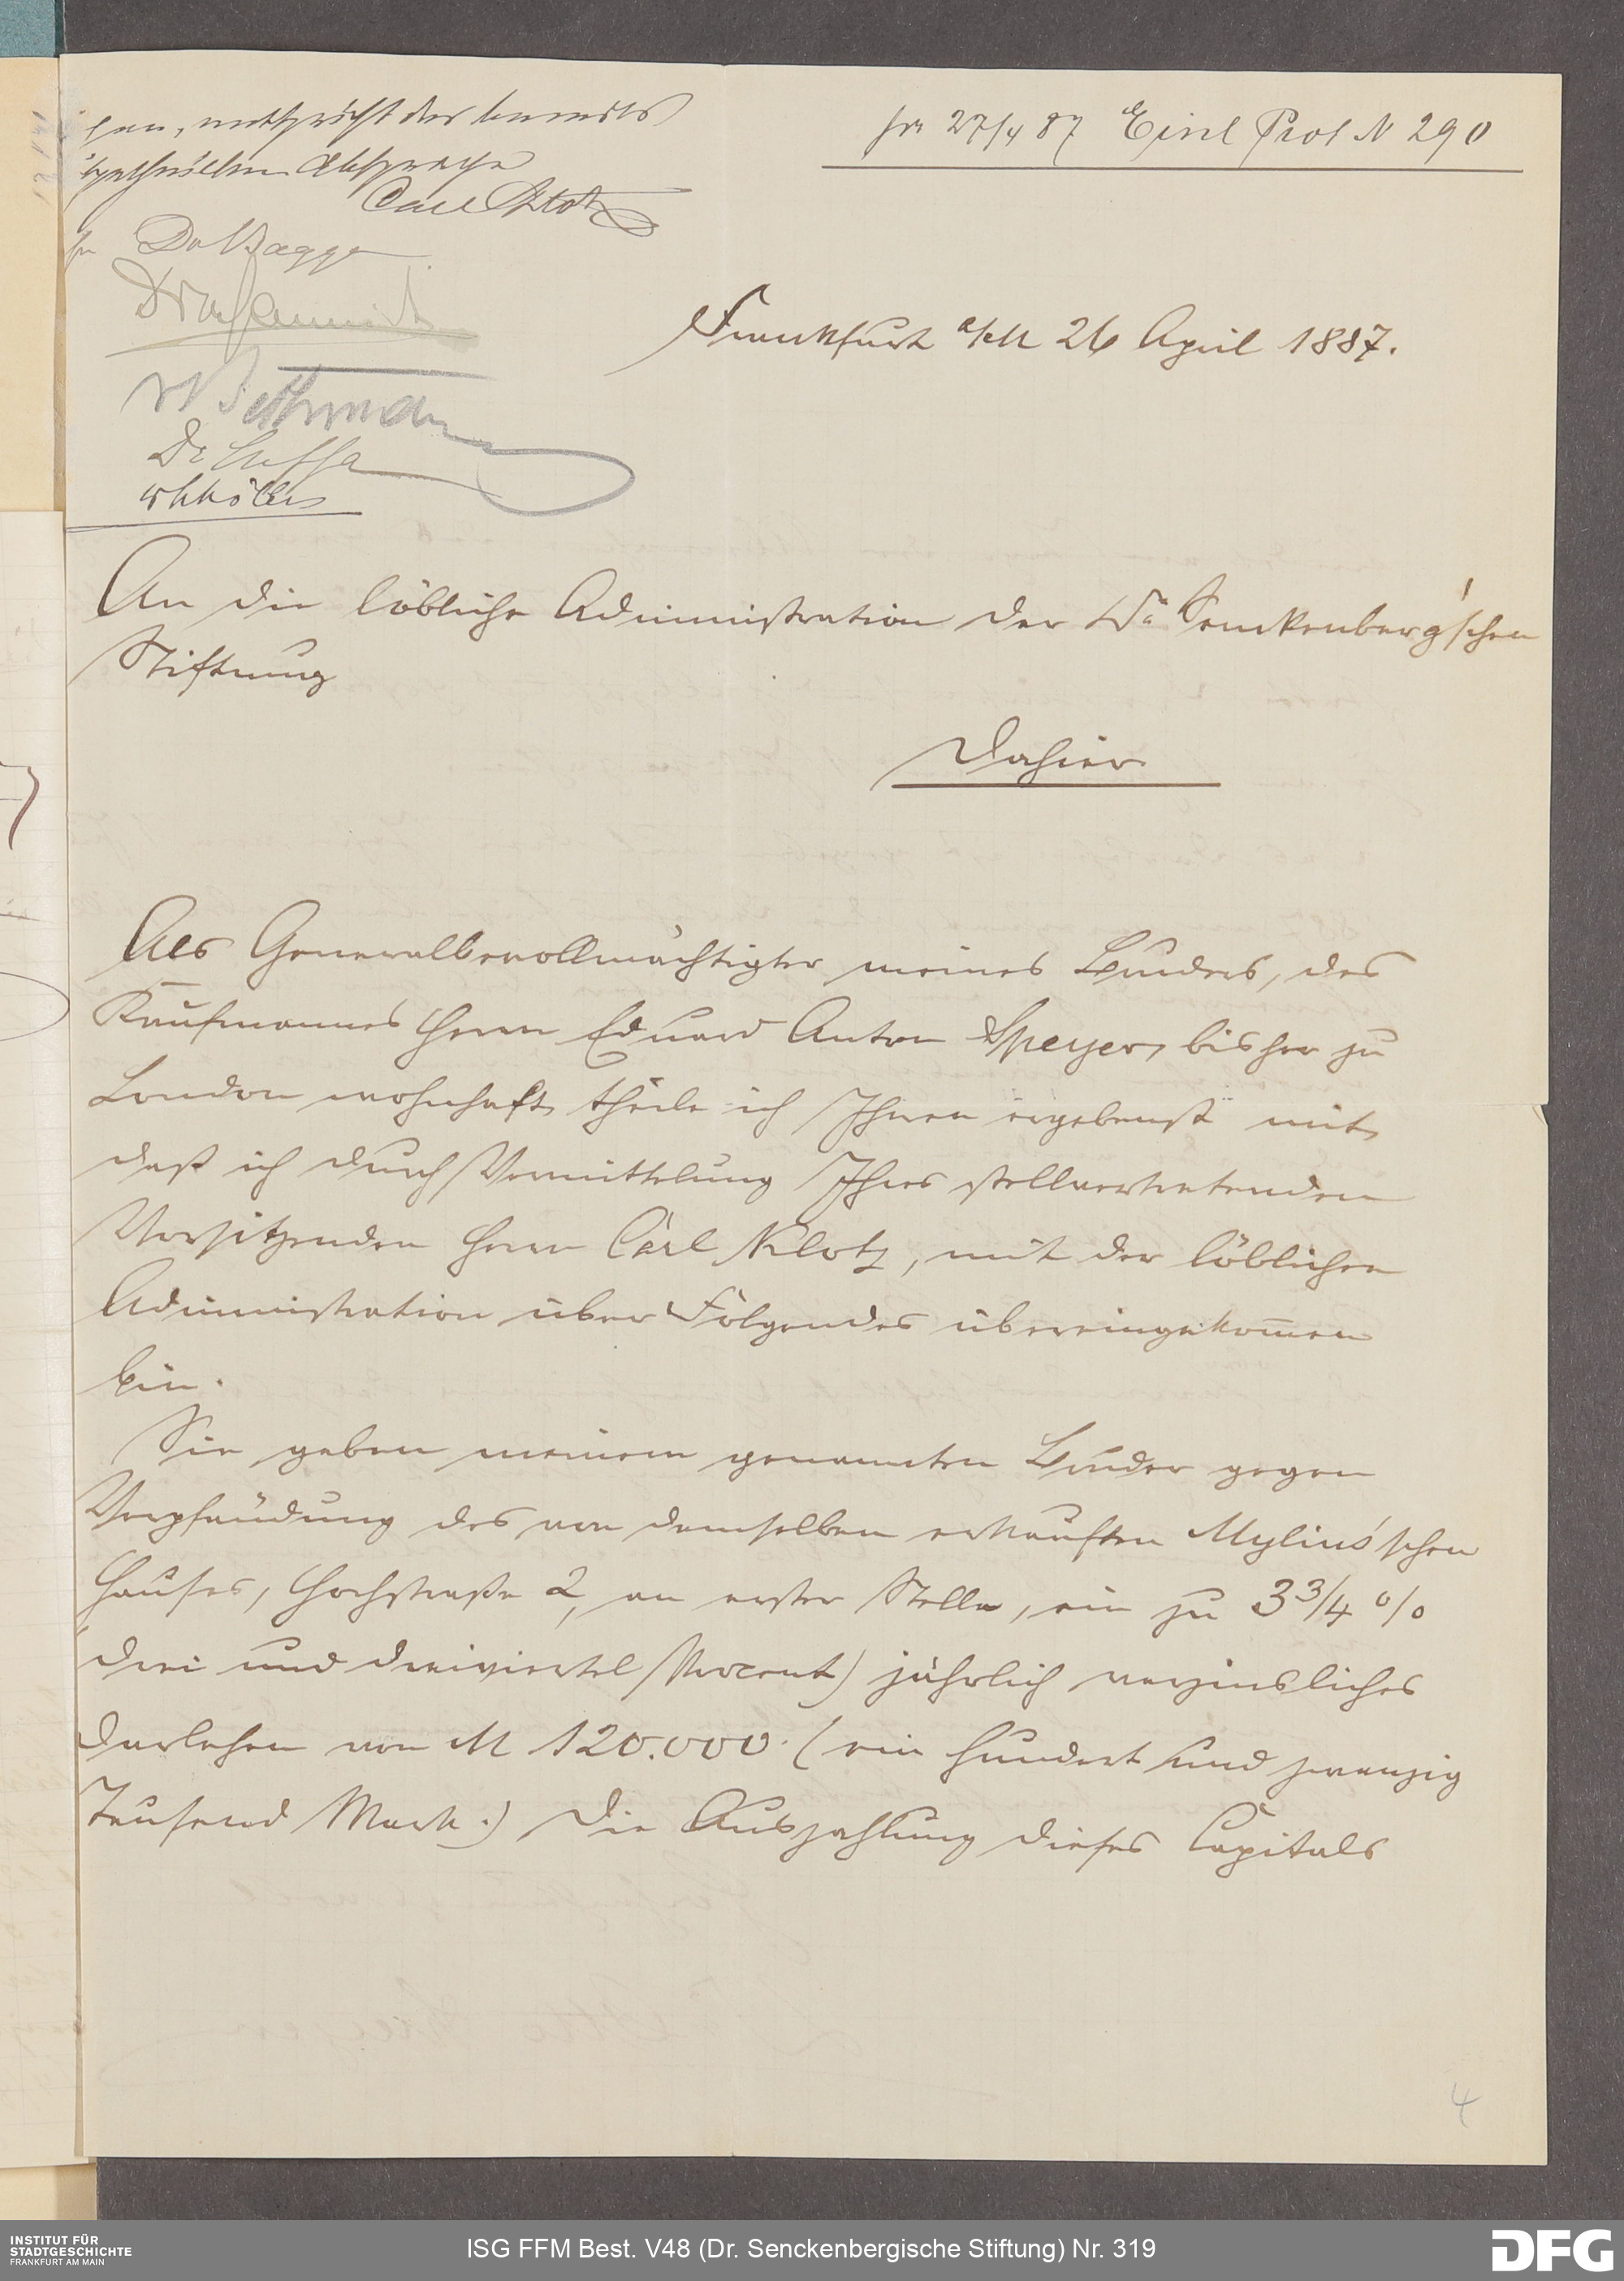 gen., entspricht der bereits
getroffenen Absprache
Carl Klotz
pr 27/4 87 Einl Prot N 290
Dr Bagge
Dr A Schmidt
Frankfurt a/M 26 April 1887.
v Bethmann
An die löbliche Administration der Dr Senckenberg'schen
Stiftung
Dahier
Als Generalbevollmächtigter meines Bruders, des
Kaufmannes Herrn Eduard Anton Speyer, bisher zu
London wohnhaft, theile ich Ihnen ergebenst mit,
daß ich durch Vermittelung Ihres stellvertretenden
Vorsitzenden Herrn Carl Klotz, mit der löblichen
Administration über Folgendes übereingekom̅en
bin.
Sie geben meinem genannten Bruder gegen
Verpfändung des von demselben erkauften Mylius'schen
Hauses, Hochstraße 2, an erster Stelle, ein zu 3 3/4 %
(drei und dreiviertel Procent) jährlich verzinsliches
Darlehen von M 120.000. (ein hundert und zwanzig
Tausend Mark.) Die Auszahlung dieses Capitals
4
INSTITUT FÜR
STADTGESCHICHTE
FRANKFURT AM MAIN
ISG FFM Best. V48 (Dr. Senckenbergische Stiftung) Nr. 319
DFG